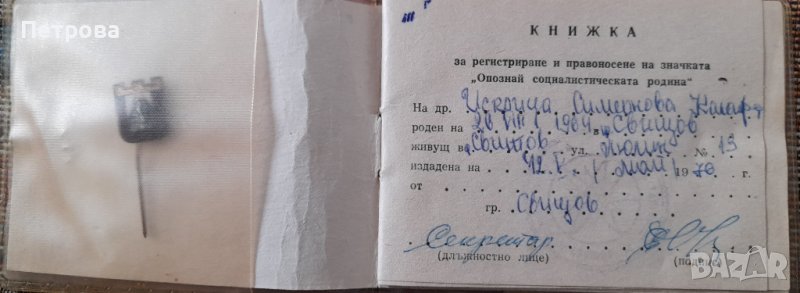 Петрова
КНИЖКА
за регистриране и правоносене на значката
„Опознай социалистическата родина“
На др. Искрица Симеонова
роден на 20 VIII 1964 в Свищов
живущ в Свищов ул. № 13
издадена на 12.V. май 1976 г.
от
гр. Свищов
Секретар
(длъжностно лице) (подпис)
BAZAR